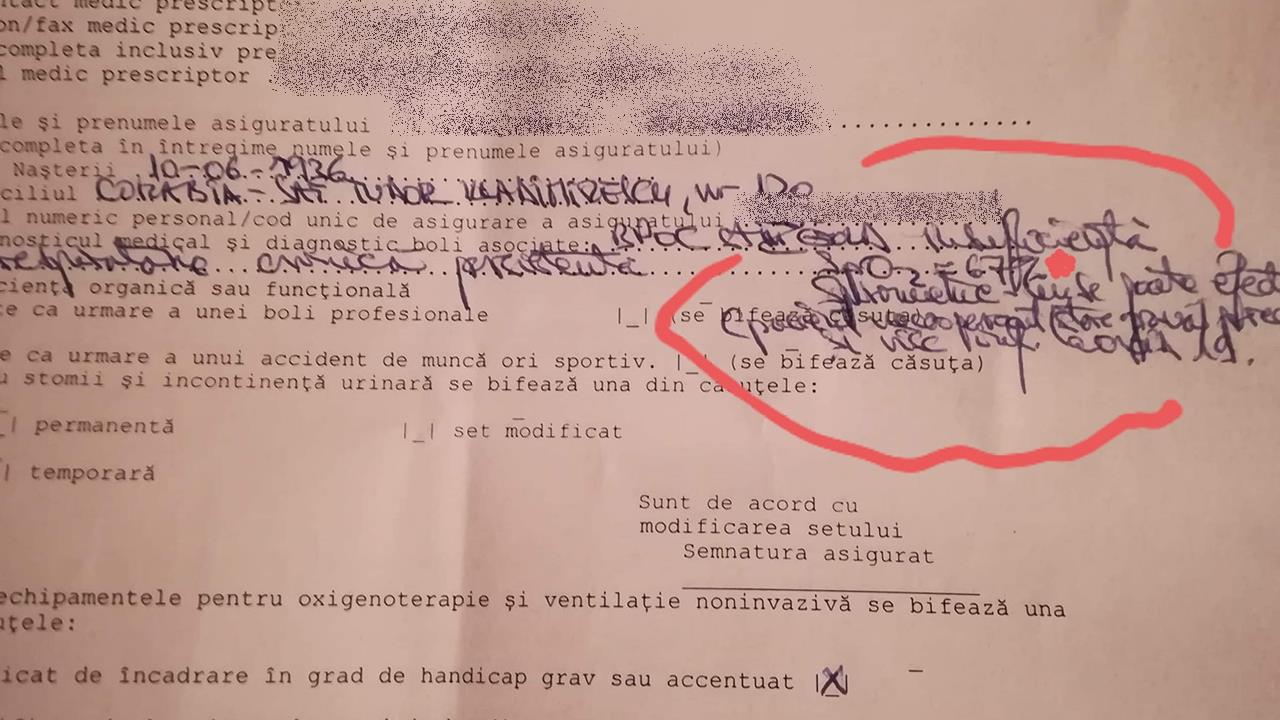 ntact medic prescript
on/fax medic prescrip
completa inclusiv pre
l medic prescriptor
le şi prenumele asiguratului ...............
completa în întregime numele şi prenumele asiguratului)
Naşterii 10-06-1936
ciliul CORABIA - SAT TUDOR VLADIMIRESCU, nr 120
l numeric personal/cod unic de asigurare a asiguratului
nosticul medical şi diagnostic boli asociate: BPOC stadiu insuficienţă
respiratorie cronică persistentă
SpO2 = 67%
cienţă organică sau funcţională
Spirometrie nu se poate efect
te ca urmare a unei boli profesionale |_| (se bifează căsuţa)
şi
e ca urmare a unui accident de muncă ori sportiv. |_| (se bifează căsuţa)
u stomii şi incontinenţă urinară se bifează una din căsuţele:
_| permanentă |_| set modificat
| temporară
Sunt de acord cu
modificarea setului
Semnatura asigurat
echipamentele pentru oxigenoterapie şi ventilaţie noninvazivă se bifează una
uţele:
icat de încadrare în grad de handicap grav sau accentuat |X|